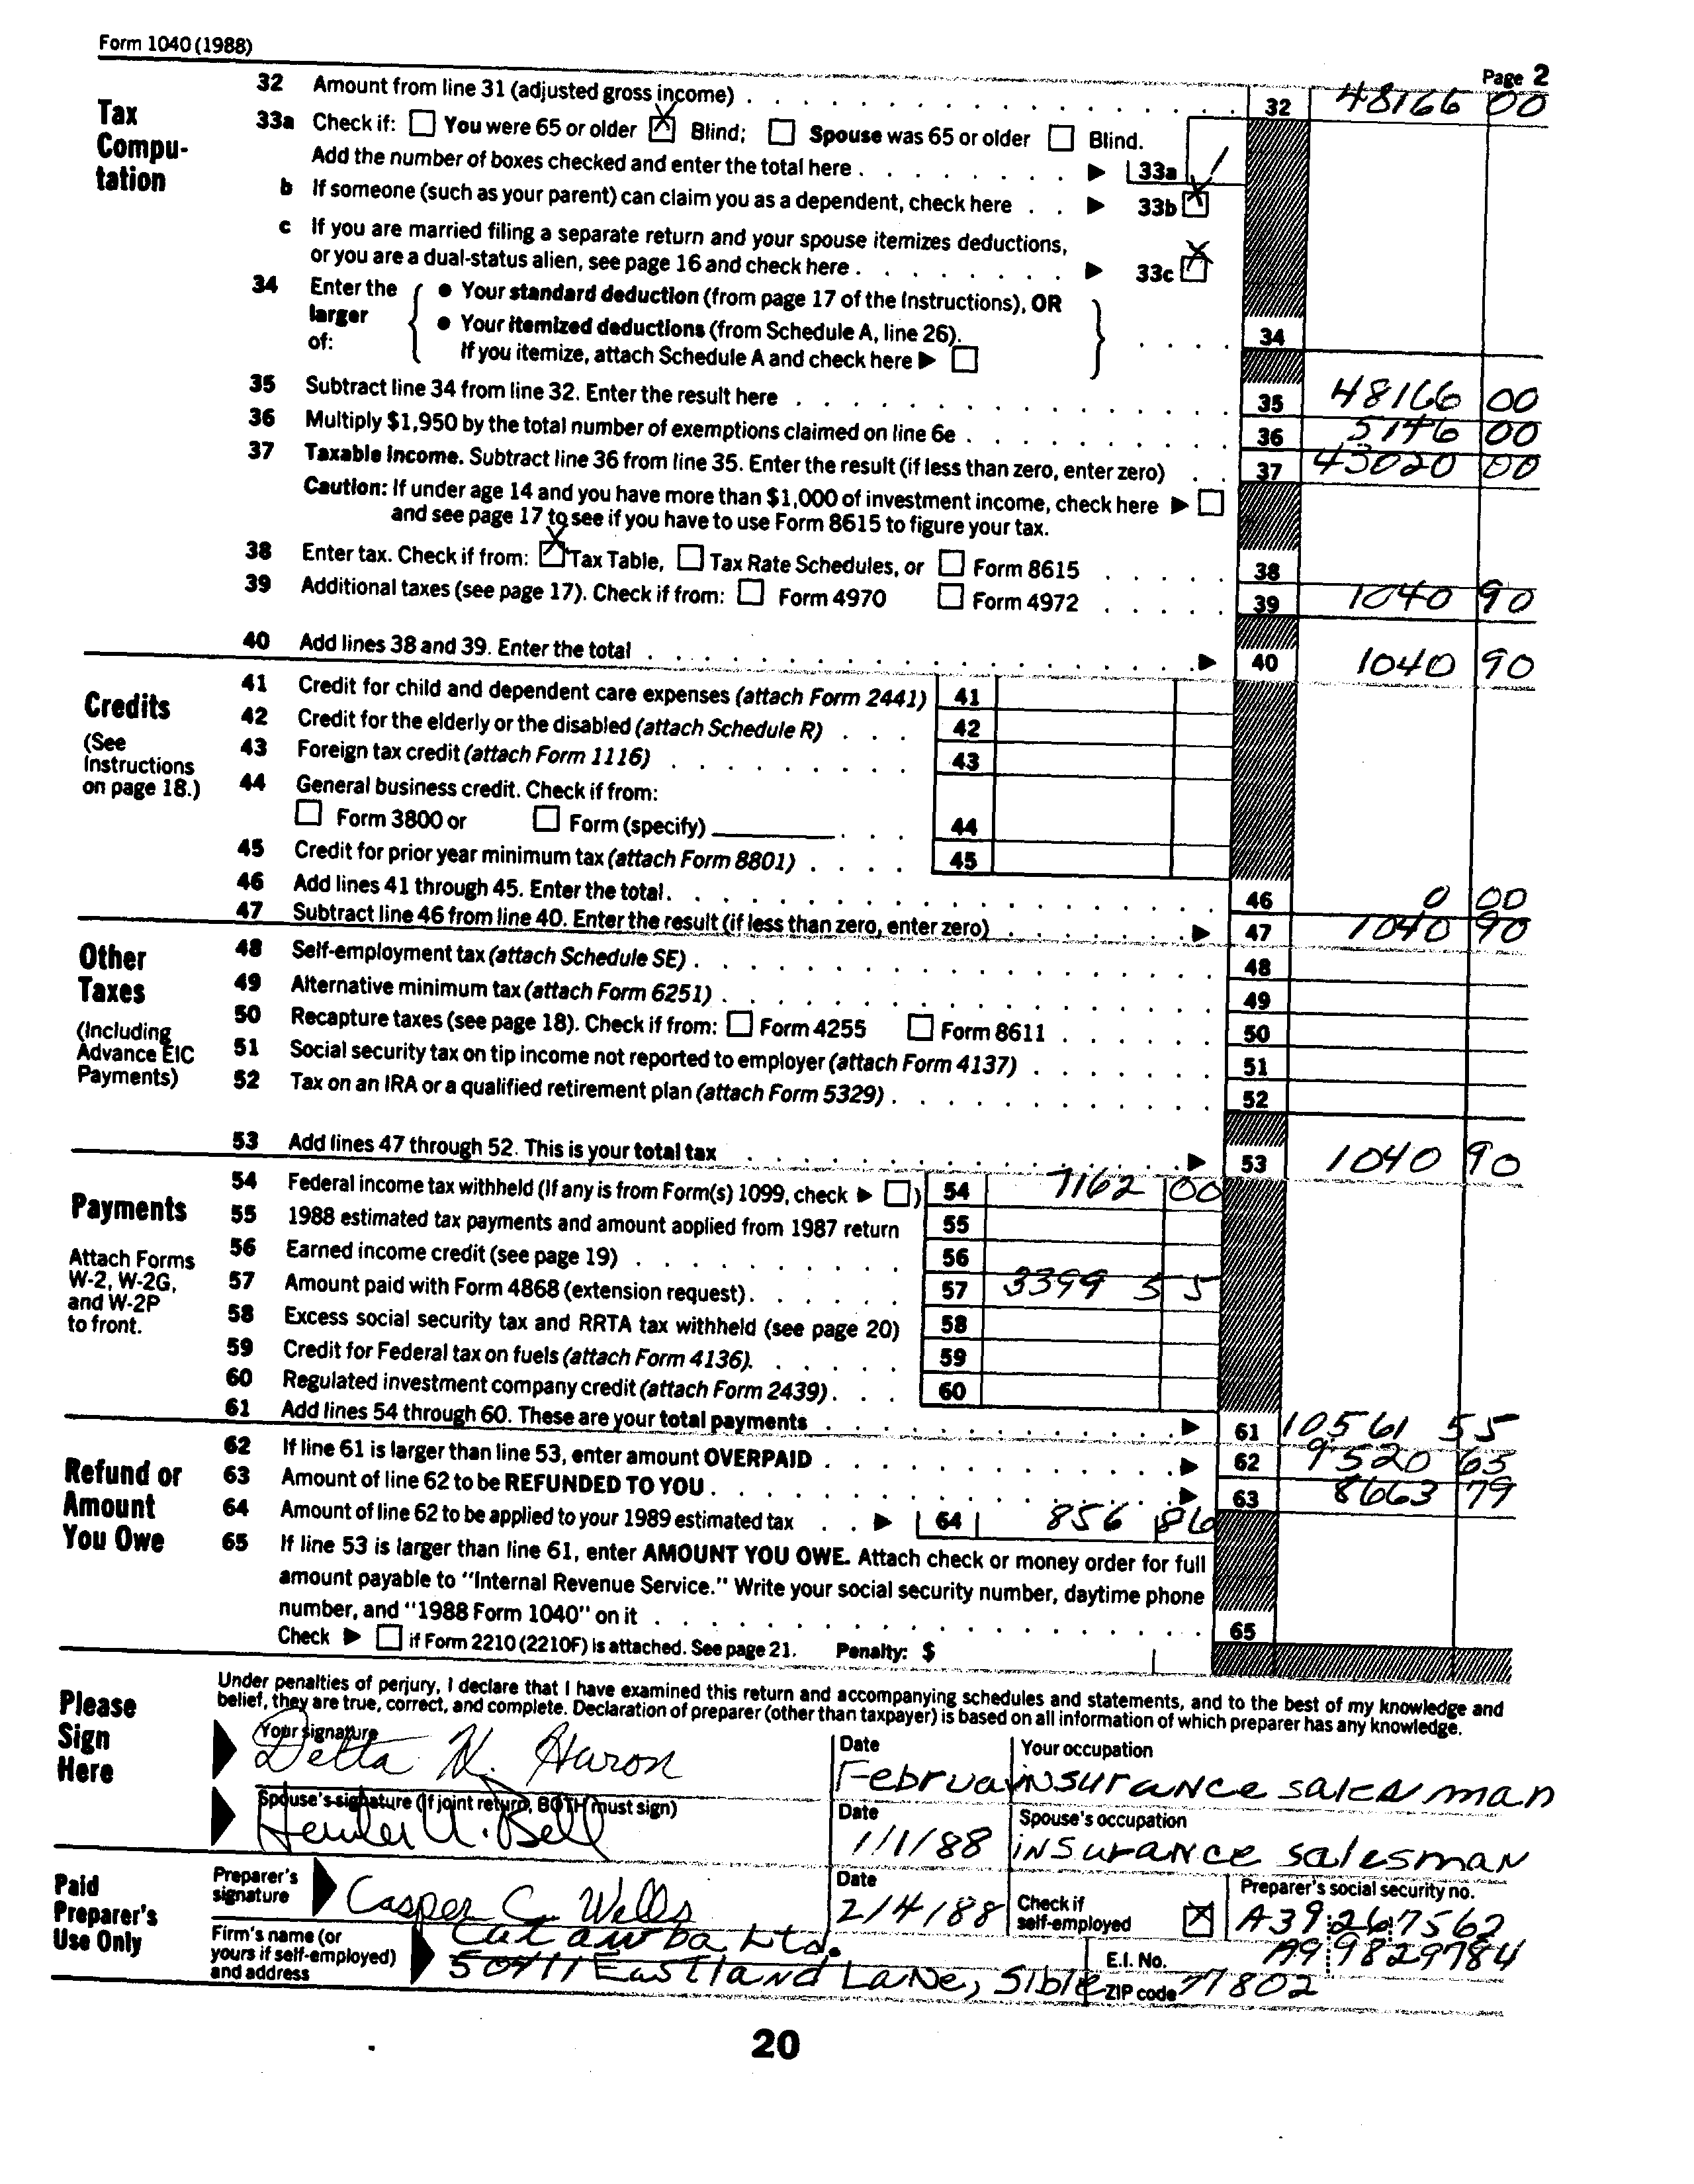 Form 1040 (1988)
Page 2
Tax Compu-tation
32 Amount from line 31 (adjusted gross income) 32 48166 00
33a Check if: You were 65 or older X Blind; Spouse was 65 or older Blind.
Add the number of boxes checked and enter the total here 33a 1
b If someone (such as your parent) can claim you as a dependent, check here 33b X
c If you are married filing a separate return and your spouse itemizes deductions,
or you are a dual-status alien, see page 16 and check here 33c X
34 Enter the larger of: • Your standard deduction (from page 17 of the Instructions), OR
• Your itemized deductions (from Schedule A, line 26).
If you itemize, attach Schedule A and check here 34
35 Subtract line 34 from line 32. Enter the result here 35 48166 00
36 Multiply $1,950 by the total number of exemptions claimed on line 6e 36 5146 00
37 Taxable income. Subtract line 36 from line 35. Enter the result (if less than zero, enter zero) 37 43020 00
Caution: If under age 14 and you have more than $1,000 of investment income, check here
and see page 17 to see if you have to use Form 8615 to figure your tax.
38 Enter tax. Check if from: X Tax Table, Tax Rate Schedules, or Form 8615 38
39 Additional taxes (see page 17). Check if from: Form 4970 Form 4972 39 1040 90
40 Add lines 38 and 39. Enter the total 40 1040 90
Credits
(See Instructions on page 18.)
41 Credit for child and dependent care expenses (attach Form 2441) 41
42 Credit for the elderly or the disabled (attach Schedule R) 42
43 Foreign tax credit (attach Form 1116) 43
44 General business credit. Check if from:
Form 3800 or Form (specify) 44
45 Credit for prior year minimum tax (attach Form 8801) 45
46 Add lines 41 through 45. Enter the total. 46 0 00
47 Subtract line 46 from line 40. Enter the result (if less than zero, enter zero) 47 1040 90
Other Taxes
(Including Advance EIC Payments)
48 Self-employment tax (attach Schedule SE) 48
49 Alternative minimum tax (attach Form 6251) 49
50 Recapture taxes (see page 18). Check if from: Form 4255 Form 8611 50
51 Social security tax on tip income not reported to employer (attach Form 4137) 51
52 Tax on an IRA or a qualified retirement plan (attach Form 5329) 52
53 Add lines 47 through 52. This is your total tax 53 1040 90
Payments
Attach Forms W-2, W-2G, and W-2P to front.
54 Federal income tax withheld (If any is from Form(s) 1099, check ) 54 7162 00
55 1988 estimated tax payments and amount applied from 1987 return 55
56 Earned income credit (see page 19) 56
57 Amount paid with Form 4868 (extension request). 57 3399 55
58 Excess social security tax and RRTA tax withheld (see page 20) 58
59 Credit for Federal tax on fuels (attach Form 4136). 59
60 Regulated investment company credit (attach Form 2439) 60
61 Add lines 54 through 60. These are your total payments 61 10561 55
Refund or Amount You Owe
62 If line 61 is larger than line 53, enter amount OVERPAID 62 9520 65
63 Amount of line 62 to be REFUNDED TO YOU 63 8663 79
64 Amount of line 62 to be applied to your 1989 estimated tax 64 856 86
65 If line 53 is larger than line 61, enter AMOUNT YOU OWE. Attach check or money order for full
amount payable to "Internal Revenue Service." Write your social security number, daytime phone
number, and "1988 Form 1040" on it 65
Check if Form 2210 (2210F) is attached. See page 21. Penalty: $
Please Sign Here
Under penalties of perjury, I declare that I have examined this return and accompanying schedules and statements, and to the best of my knowledge and
belief, they are true, correct, and complete. Declaration of preparer (other than taxpayer) is based on all information of which preparer has any knowledge.
Your signature Date Your occupation
Delta N. Aaron Februa insurance salesman
Spouse's signature (if joint return, BOTH must sign) Date Spouse's occupation
A. Bell 1/1/88 insurance salesman
Paid Preparer's Use Only
Preparer's signature Casper C. Wells Date 2/4/88 Check if self-employed X Preparer's social security no. A39 26 7562
Firm's name (or yours if self-employed) and address Catawba Ltd. E.I. No. A9 9829784
50411 Eastland Lane, Sible ZIP code 77802
20